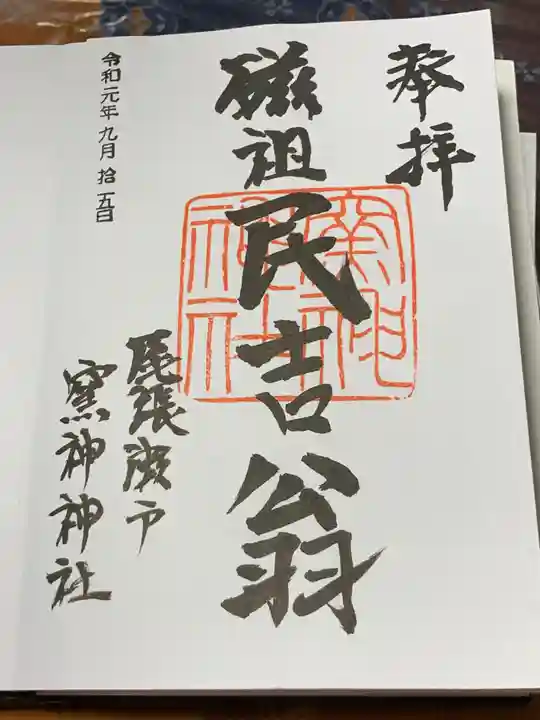 奉拝
磁祖民吉翁
窯神神社
尾張瀬戸
窯神神社
令和元年九月拾五日